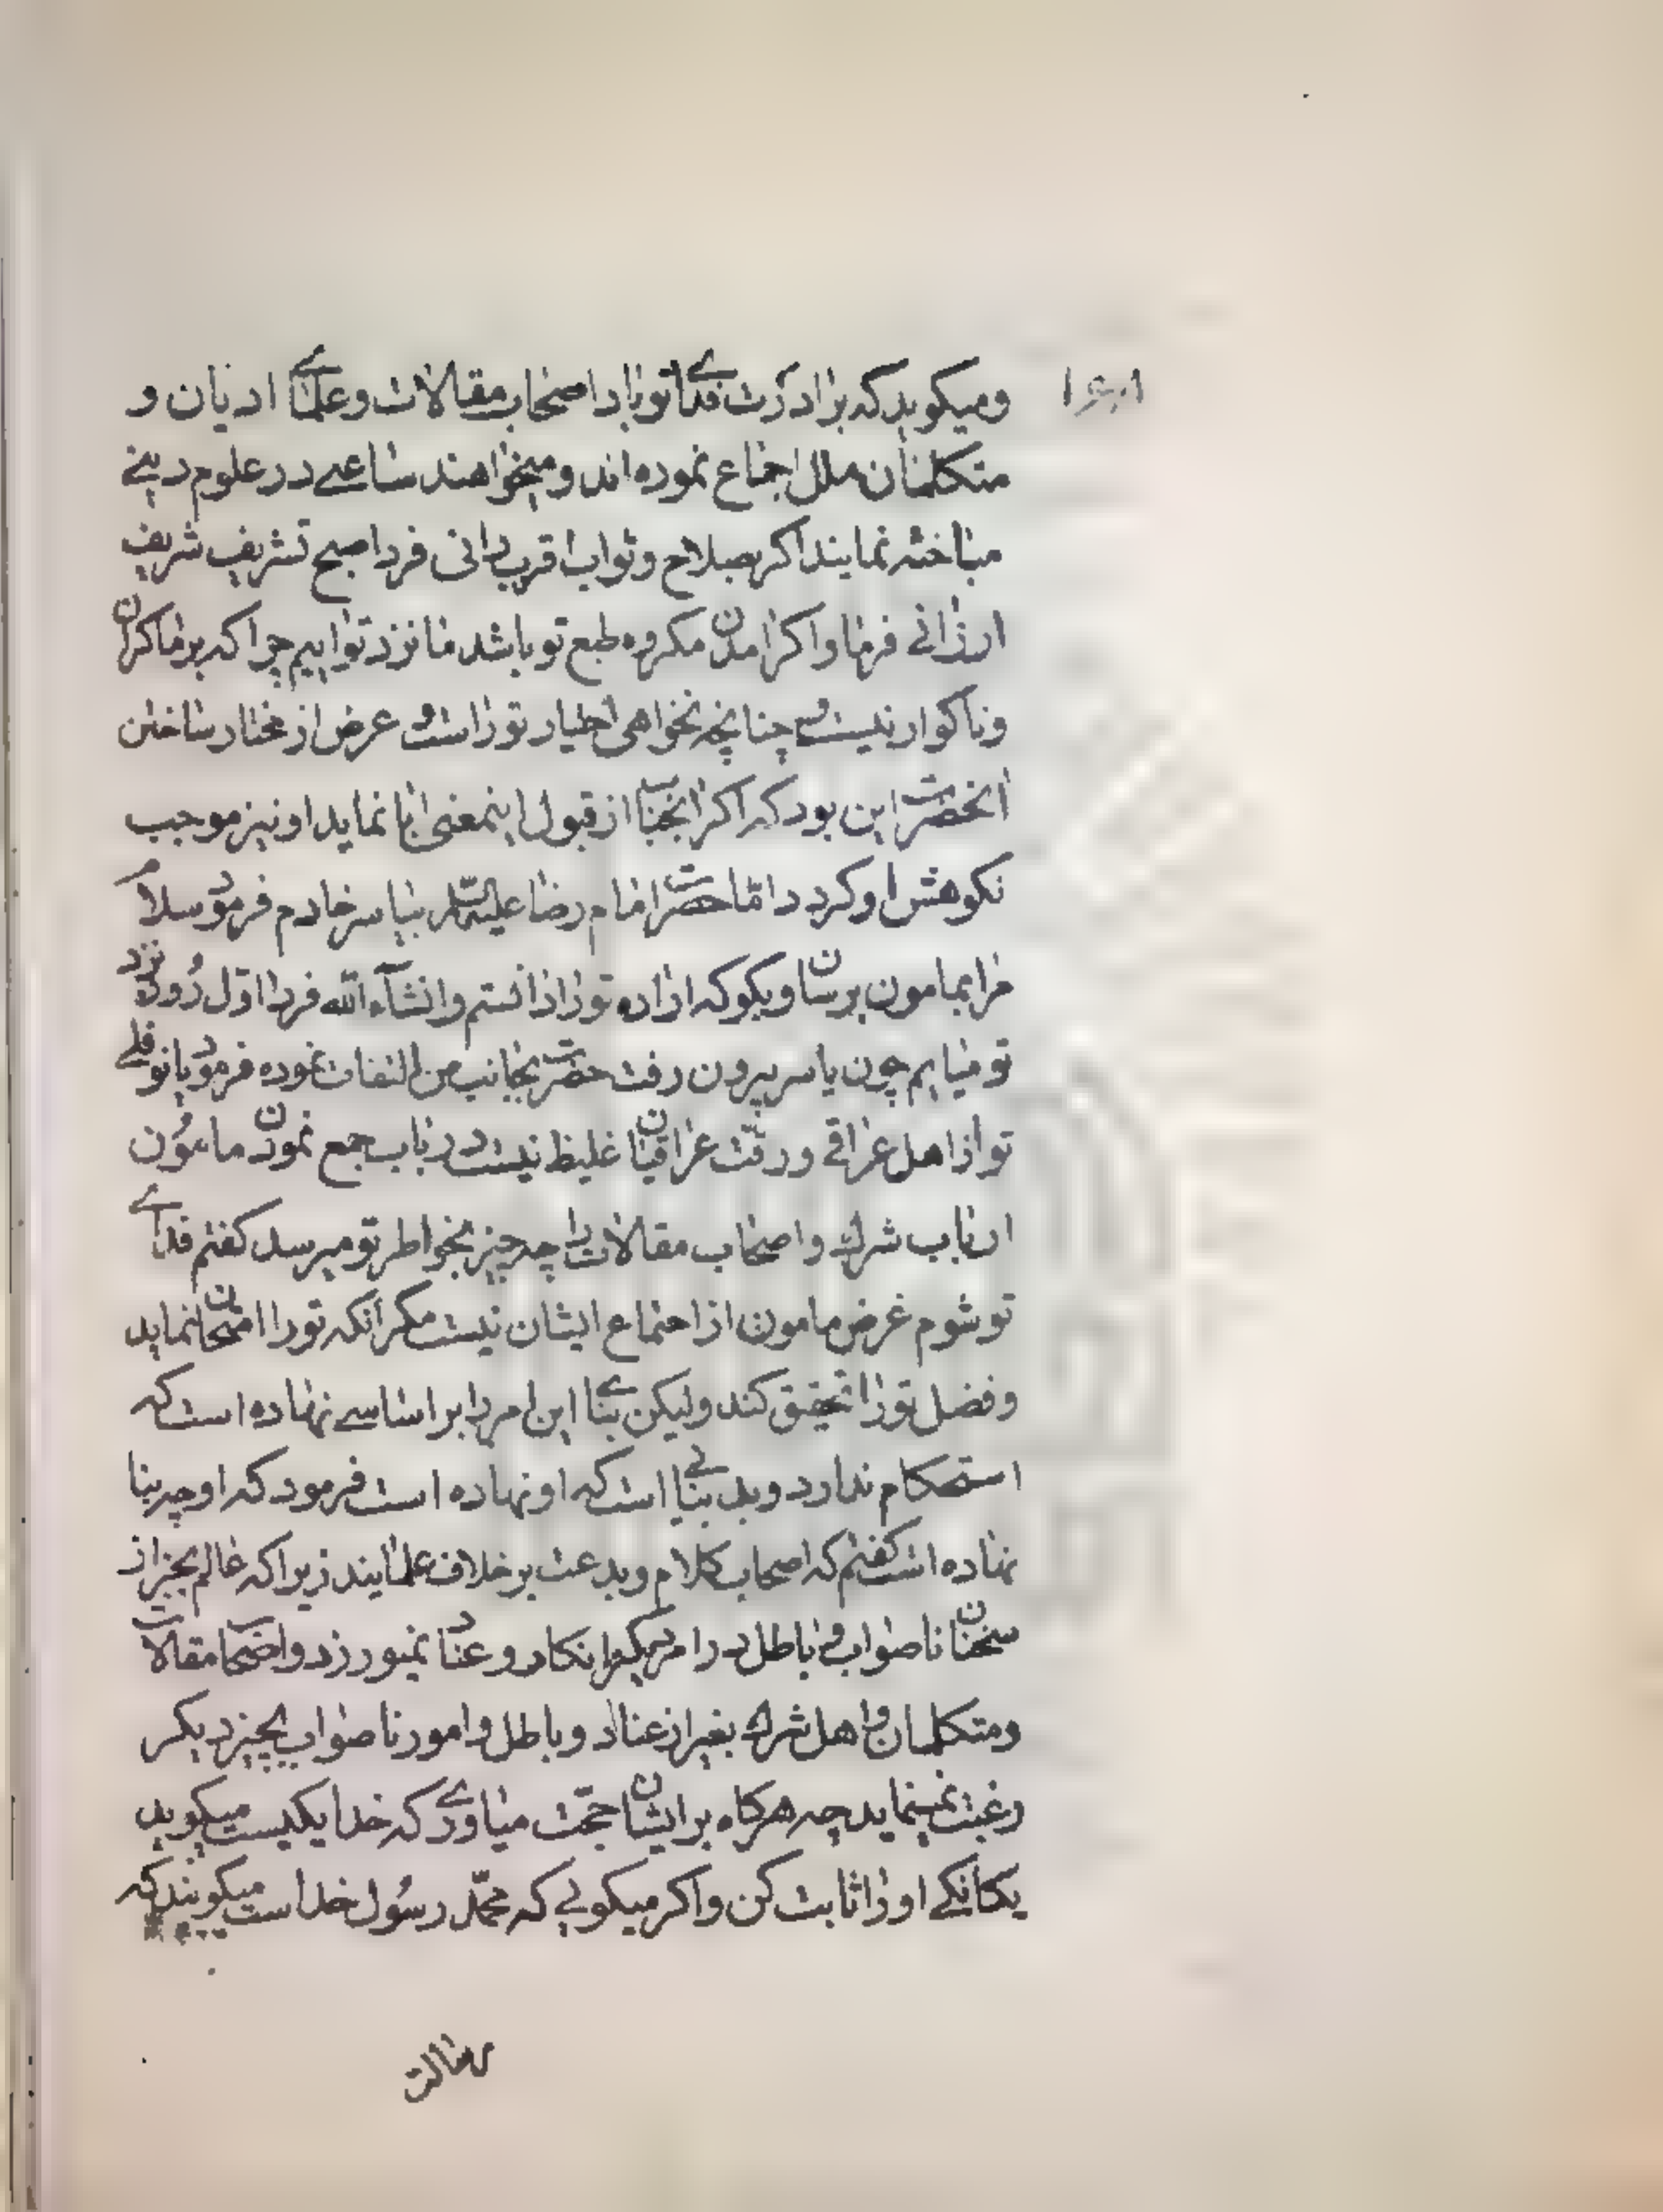 ومیکوید که برادرت فدای تو باد اصحاب مقالات و علمای ادیان و
متکلمان ملل اجتماع نموده اند و میخواهند ساعتی در علوم دینی
مباحثه نمایند اکر صلاح و ثواب اقرب دانی فردا صبح تشریف شریف
ارزانی فرما و اکر امدن مکروه طبع تو باشد ما نزد تو ابیم چرا که بر ما کران
و ناکوار نیست و چنانچه نخواهی اختیار توراست و غرض از مختار ساختن
انحضرت این بود که اکر انجناب از قبول اینمعنی ابا نماید او نیز موجب
نکوهش او کردد امّا حضرت امام رضا علیه السّلام بیاسر خادم فرمود سلام
مرا بمامون برسان و بکو که اراده تورا دانستم و انشآء الله فردا اوّل روز نزد
تو میایم چون یاسر بیرون رفت حضرت بجانب من التفات نموده فرمود یا نوفلی
تو از اهل عراقی و رقّت عراقیان غلیظ نیست در باب جمع نمودن مامُون
ارباب شرک و اصحاب مقالات را چه چیز بخواطر تو میرسد کفتم فدای
تو شوم غرض مامون از اجتماع ایشان نیست مکر آنکه تورا امتحان نماید
و فضل تورا تحقیق کند ولیکن بنای این امر را بر اساسی نهاده است که
استحکام ندارد و بد بنائی است که او نهاده است فرمود که او چه بنا
نهاده است کفتم که اصحاب کلام و بدعت بر خلاف علمایند زیرا که عالم بجز از
سخنان ناصواب و باطل در امر دیکر انکار و عناد نمیورزد و اصحاب مقالات
و متکلمان و اهل شرک بغیر از عناد و باطل و امور ناصواب بچیز دیکر
رغبت نمینماید چه هرکاه بر ایشان حجّت میاوری که خدا یکیست میکوید
یکانکی اورا ثابت کن و اکر میکویی که محمّد رسُول خداست میکویند که
رسالت